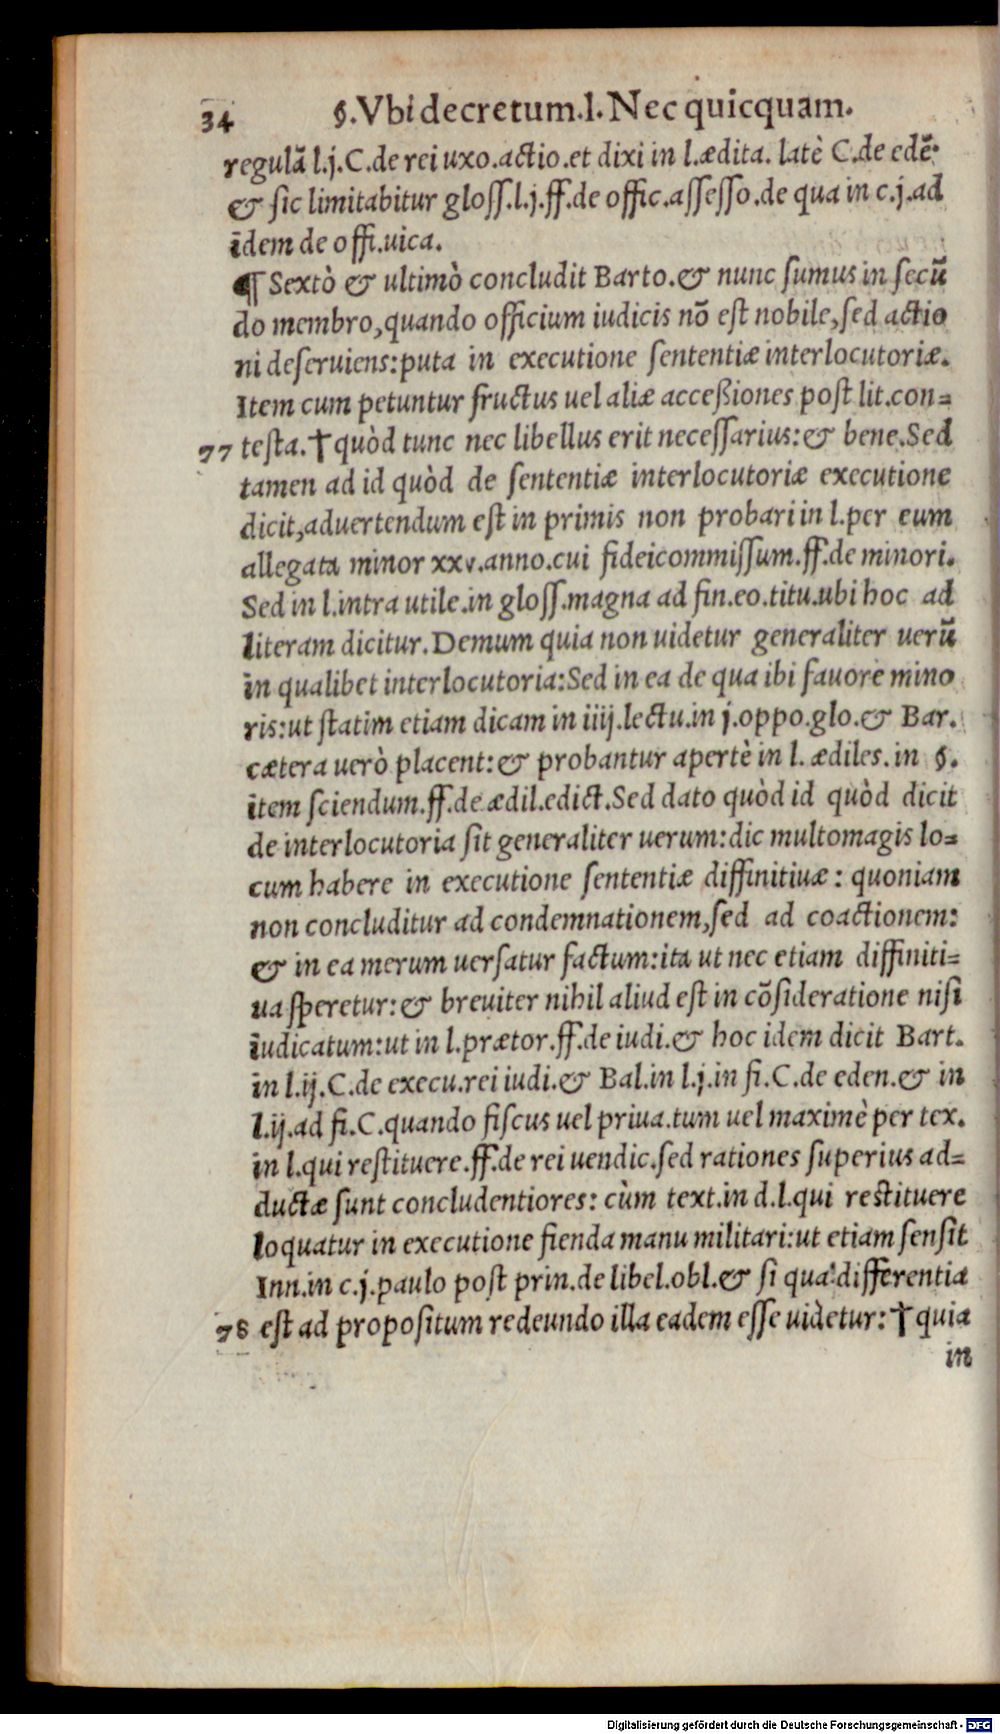 34 §.Vbi decretum.l.Nec quicquam.
regulā l.j.C.de rei uxo.actio.et dixi in l.ædita. latè C.de edē.
& sic limitabitur gloss.l.j.ff.de offic.assesso.de qua in c.j.ad
idem de offi.uica.
¶ Sextò & ultimò concludit Barto.& nunc sumus in secū
do membro,quando officium iudicis nō est nobile,sed actio
ni deseruiens:puta in executione sententiæ interlocutoriæ.
Item cum petuntur fructus uel aliæ acceßiones post lit.con=
77 testa.†quòd tunc nec libellus erit necessarius:& bene.Sed
tamen ad id quòd de sententiæ interlocutoriæ executione
dicit,aduertendum est in primis non probari in l.per eum
allegata minor xxv.anno.cui fideicommissum.ff.de minori.
Sed in l.intra utile.in gloss.magna ad fin.eo.titu.ubi hoc ad
literam dicitur.Demum quia non uidetur generaliter uerū
in qualibet interlocutoria:Sed in ea de qua ibi fauore mino
ris:ut statim etiam dicam in iiij.lectu.in j.oppo.glo.& Bar.
cætera uerò placent:& probantur apertè in l. ædiles. in §.
item sciendum.ff.de ædil.edict.Sed dato quòd id quòd dicit
de interlocutoria sit generaliter uerum:dic multomagis lo=
cum habere in executione sententiæ diffinitiuæ: quoniam
non concluditur ad condemnationem,sed ad coactionem:
& in ea merum uersatur factum:ita ut nec etiam diffiniti=
ua speretur:& breuiter nihil aliud est in cōsideratione nisi
iudicatum:ut in l.prætor.ff.de iudi.& hoc idem dicit Bart.
in l.ij.C.de execu.rei iudi.& Bal.in l.j.in fi.C.de eden.& in
l.ij.ad fi.C.quando fiscus uel priua.tum uel maximè per tex.
in l.qui restituere.ff.de rei uendic.sed rationes superius ad=
ductæ sunt concludentiores: cùm text.in d.l.qui restituere
loquatur in executione fienda manu militari:ut etiam sensit
Inn.in c.j.paulo post prin.de libel.obl.& si qua differentia
78 est ad propositum redeundo illa eadem esse uidetur:†quia
in
Digitalisierung gefördert durch die Deutsche Forschungsgemeinschaft - DFG